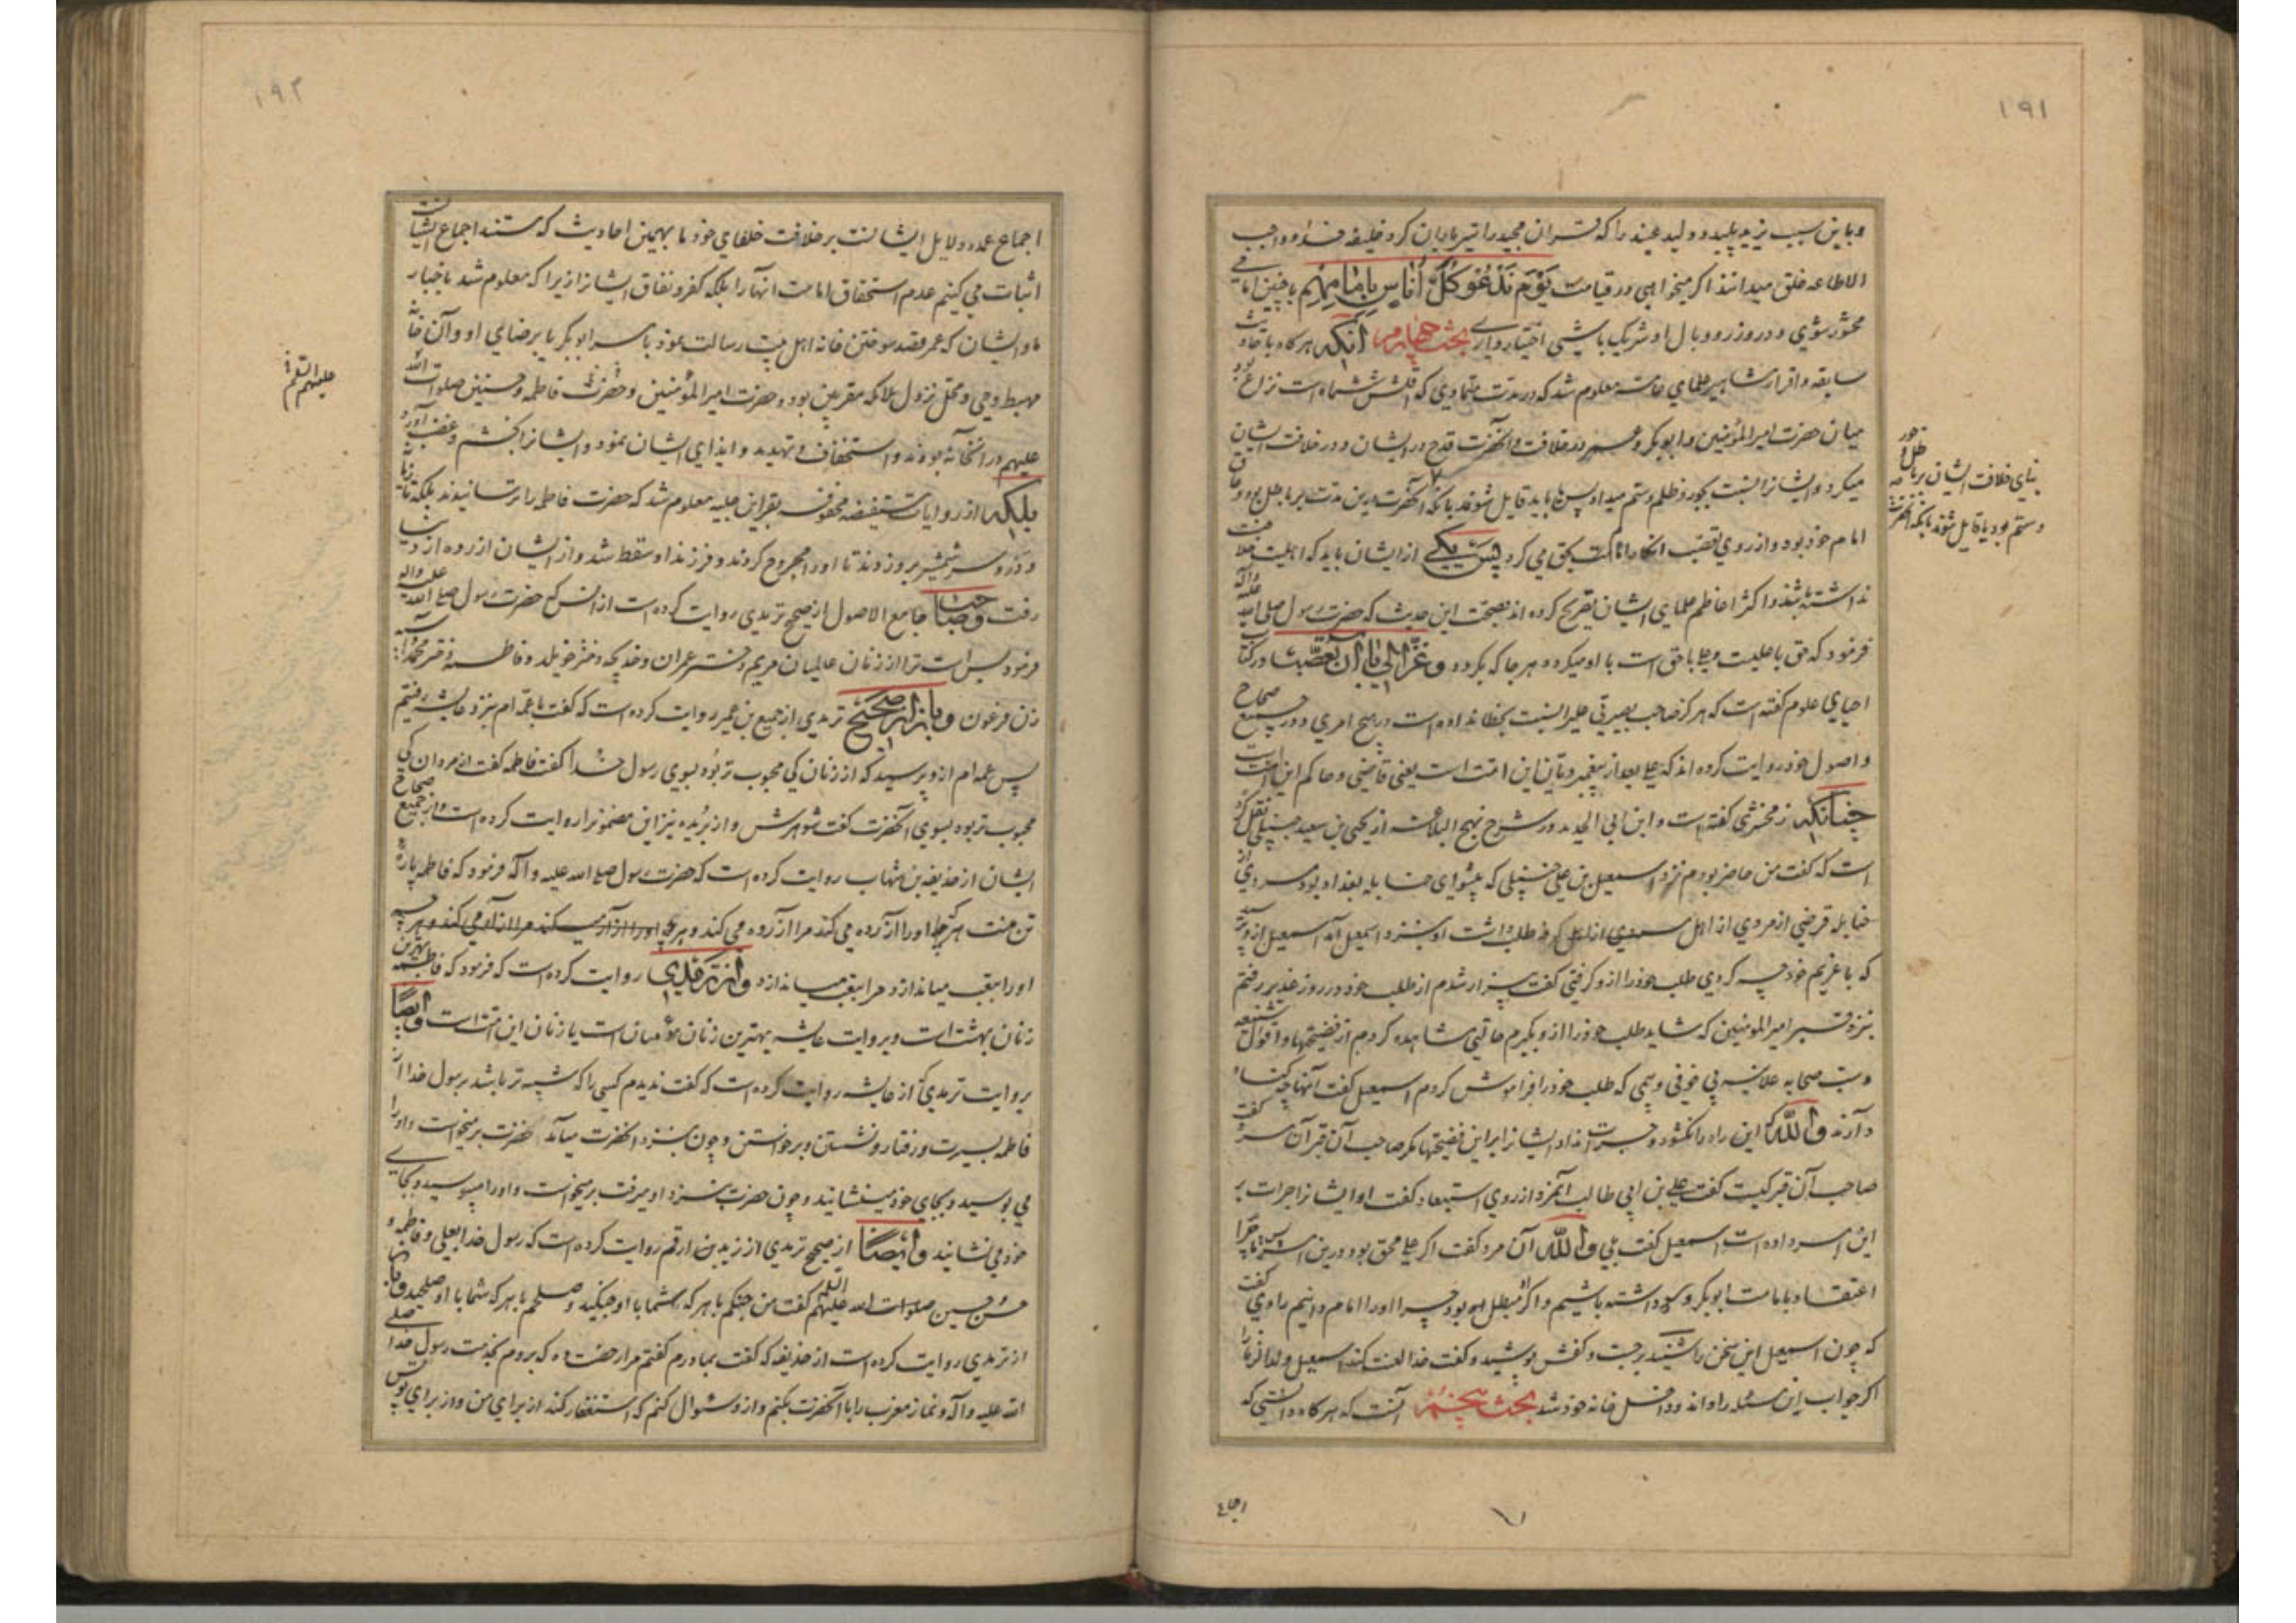 ۱۹۱
و باین سبب یزید پلید و ولید عنید را که قرآن مجید را تیر باران کرد خلیفه خدا و واجب
الاطاعه خلق میدانند اگر میخواهی در قیامت یَوْمَ نَدْعُو كُلَّ أُنَاسٍ بِإِمَامِهِمْ با چنین امامی
محشور شوی و در وزر و وبال او شریک باشی اختیار داری بحث چهارم آنکه هرگاه باحادیث
سابقه و اقرار مشاهیر علمای عامه معلوم شد که در مدت متمادی که اقلش ششماه است نزاع
میان حضرت امیر المؤمنین و ابوبکر و عمر در خلافت و آنحضرت قدح در ایشان و در خلافت ایشان
میکرد و ایشانرا نسبت بجور و ظلم و ستم میداد پس باید قایل شوند بآنکه آنحضرت درین مدت بر باطل بود و عاق
امام خود بود و از روی تعصب انکار امامت بحق می کرد پس یکی از ایشان باید که اهلیت خلافت
نداشته باشد و اکثر اعاظم علمای ایشان تصریح کرده اند بصحت این حدیث که حضرت رسول صلی الله علیه وآله
فرمود که حق با علیست و علی با حق است با او میگردد هر جا که بگردد و غزالی با آن تعصبها در کتاب
احیای علوم گفته است که هرگز صاحب بصیرتی علیرا نسبت بخطا نداده است در هیچ امری و در جمیع صحاح
و اصول خود روایت کرده اند که علی بعد از پیغمبر ربانی این امت است یعنی قاضی و حاکم این امت است
چنانکه زمخشری گفته است و ابن ابی الحدید در شرح نهج البلاغه از یحیی بن سعید حنبلی نقل کرده
است که گفت من حاضر بودم نزد اسمعیل بن علی حنبلی که پیشوای حنابله بغداد بود مردی از
حنابله قرضی از مردی از اهل کوفه طلب داشت او بنزد اسمعیل آمد اسمعیل ازو پرسید
که با غریم خود چه کردی طلب خود را ازو گرفتی گفت بیزار شدم از طلب خود در روز غدیر رفتم
بنزد قبر امیر المؤمنین که شاید طلب خود را ازو بگیرم حالتی مشاهده کردم از فضیحتها و اقوال شنیعه
و سب صحابه علانیه بی خوفی و بیمی که طلب خود را فراموش کردم اسمعیل گفت آنها چه گناه
دارند والله که این راه را نگشود و جرات نداد ایشانرا براین فضیحتها مگر صاحب آن قبر آن مرد گفت
صاحب آن قبر کیست گفت علی بن ابی طالب آنمرد از روی استبعاد گفت او ایشانرا جرات بر
این امر داده است اسمعیل گفت بلی والله آن مرد گفت اگر علی محق بود درین امر پس ما چرا
اعتقاد بامامت ابوبکر و عمر داشته باشیم و اگر مبطل بود چرا او را امام دانیم راوی گفت
که چون اسمعیل این سخن را شنید برجست و کفش پوشید و گفت خدا لعنت کند اسمعیل ولدالزنا را
اگر جواب این مسئله را داند و داخل خانه خود شد بحث پنجم آنست که هرگاه دانستی که
بنای خلافت ایشان بر باطل و جور
و ستم بود یا قایل شوند بآنکه آنحضرت
اجماع
۱۹۲
اجماع عمده دلایل ایشانست بر خلافت خلفای خود ما بهمین احادیث که مستند اجماع ایشانست
اثبات می کنیم عدم استحقاق امامت آنها را بلکه کفر و نفاق ایشانرا زیرا که معلوم شد باخبار
ما و ایشان که عمر قصد سوختن خانه اهل بیت رسالت نمود بامر ابوبکر یا برضای او و آن خانه
مهبط وحی و محل نزول ملائکه مقربین بود و حضرت امیر المؤمنین و حضرت فاطمه و حسنین صلوات الله
علیهم در آنخانه بودند و استخفاف و تهدید و ایذای ایشان نمود و ایشانرا بخشم و غضب آورد
بلکه از روایات مستفیضه محفوفه بقراین جلیه معلوم شد که حضرت فاطمه را ترسانیدند بلکه تازیانه
و زدند و سر شمشیر برو زدند تا او را مجروح کردند و فرزند او سقط شد و از ایشان آزرده از دنیا
رفت و صاحب جامع الاصول از صحیح ترمذی روایت کرده است از انس که حضرت رسول صلی الله علیه وآله
فرمود بس است ترا از زنان عالمیان مریم دختر عمران و خدیجه دختر خویلد و فاطمه دختر محمد و آسیه
زن فرعون و باز از صحیح ترمذی از جمیع بن عمیر روایت کرده است که گفت با عمه ام بنزد عایشه رفتیم
پس عمه ام ازو پرسید که از زنان کی محبوب تر بود بسوی رسول خدا گفت فاطمه گفت از مردان کی
محبوب تر بود بسوی آنحضرت گفت شوهرش و از بریده نیز این مضمونرا روایت کرده است و از جمیع صحاح
ایشان از حذیفه بن شهاب روایت کرده است که حضرت رسول صلی الله علیه وآله فرمود که فاطمه پاره
تن منست هر که او را آزرده می کند مرا آزرده می کند و هر که
او را بتعب میاندازد مرا بتعب میاندازد و از ترمذی روایت کرده است که فرمود که فاطمه بهترین
زنان بهشت است و بروایت عایشه بهترین زنان مؤمنان است یا زنان این امت است و ایضاً
بروایت ترمذی از عایشه روایت کرده است که گفت ندیدم کسی را که شبیه تر باشد برسول خدا از
فاطمه بسیرت و رفتار و نشستن و برخواستن و چون بنزد آنحضرت میآمد حضرت برمیخواست و او را
می بوسید و بجای خود مینشانید و چون حضرت بنزد او میرفت برمیخواست و او را میبوسید و بجای
خود می نشانید و ایضاً از صحیح ترمذی از زید بن ارقم روایت کرده است که رسول خدا بعلی و فاطمه و
حسن و حسین صلوات الله علیهم گفت من جنگم با هر که شما با او جنگید و صلحم با هر که شما با او صلحید و باز
از ترمذی روایت کرده است از حذیفه که گفت بمادرم گفتم مرا رخصت ده که بروم بخدمت رسول خدا صلی
الله علیه وآله و نماز مغرب را با آنحضرت بکنم و ازو سئوال کنم که استغفار کند از برای من و از برای تو پس
علیهم السلام